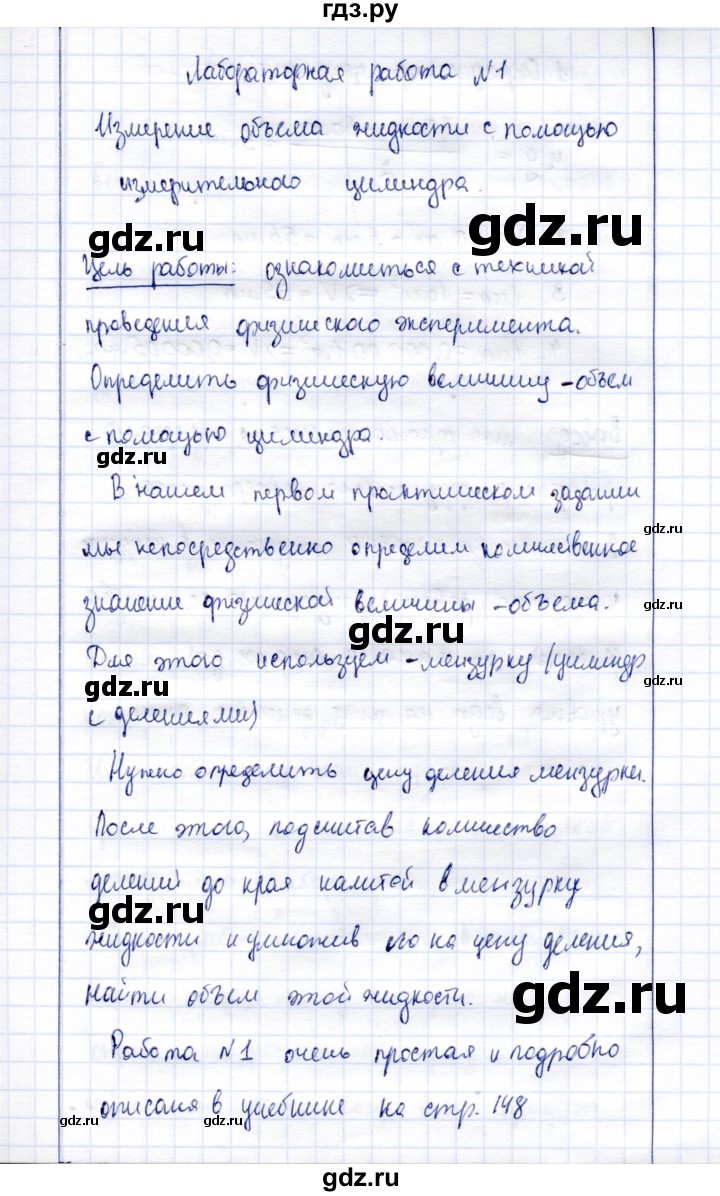 гдз.ру
Лабораторная работа №1
Измерение объема жидкости с помощью
измерительного цилиндра.
gdz.ru
gdz.ru
Цель работы: ознакомиться с техникой
проведения физического эксперимента.
Определить физическую величину - объем
с помощью цилиндра.
gdz.ru
В нашем первом практическом задании
gdz.ru
мы непосредственно определим количественное
значение физической величины - объема.
gdz.ru
gdz.ru
Для этого используем - мензурку (цилиндр
gdz.ru
gdz.ru
с делениями)
Нужно определить цену деления мензурки.
После этого, подсчитав количество
делений до края налитой в мензурку
gdz.ru
жидкости и умножив его на цену деления,
найти объем этой жидкости.
gdz.ru
Работа №1 очень простая и подробно
описана в учебнике на стр. 148
gdz.ru
gdz.ru
gdz.ru